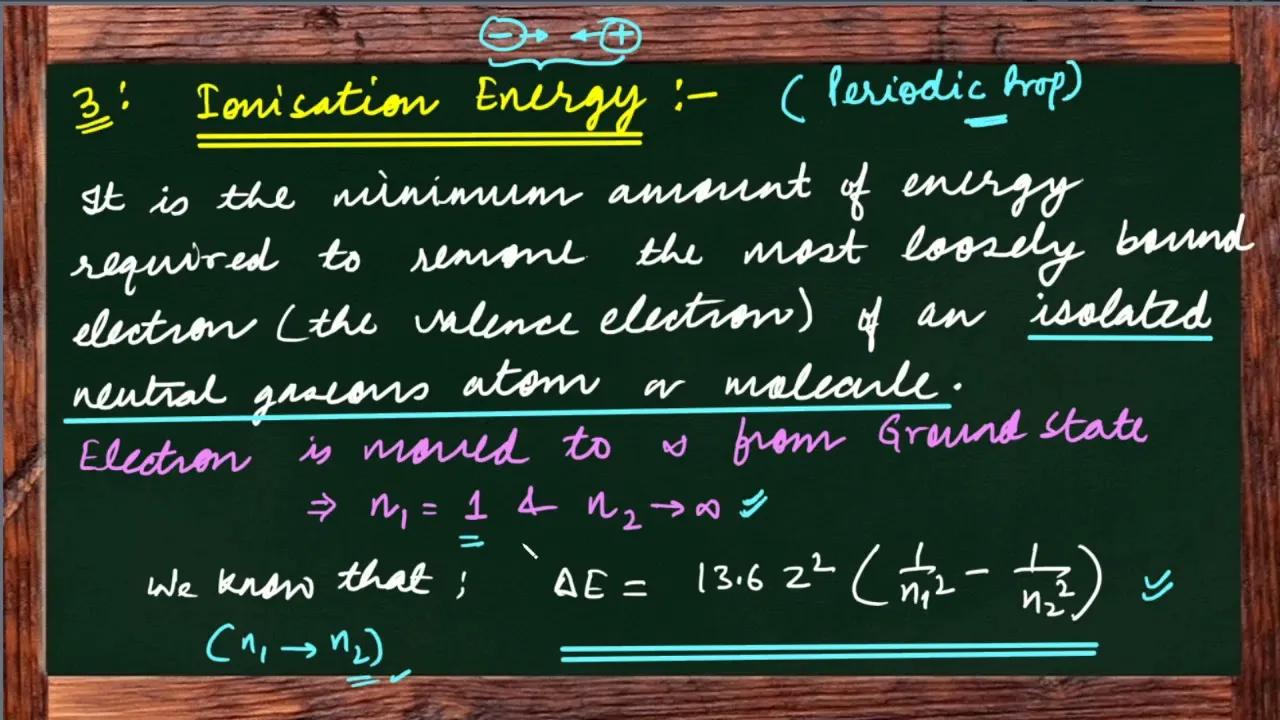 - → ← +
3: Ionisation Energy :- (Periodic Prop)
It is the minimum amount of energy
required to remove the most loosely bound
electron (the valence electron) of an isolated
neutral gaseous atom or molecule.
Electron is moved to ∞ from Ground state
⇒ n₁ = 1 & n₂ → ∞
We know that ; ΔE = 13.6 Z² (1/n₁² - 1/n₂²)
(n₁ → n₂)